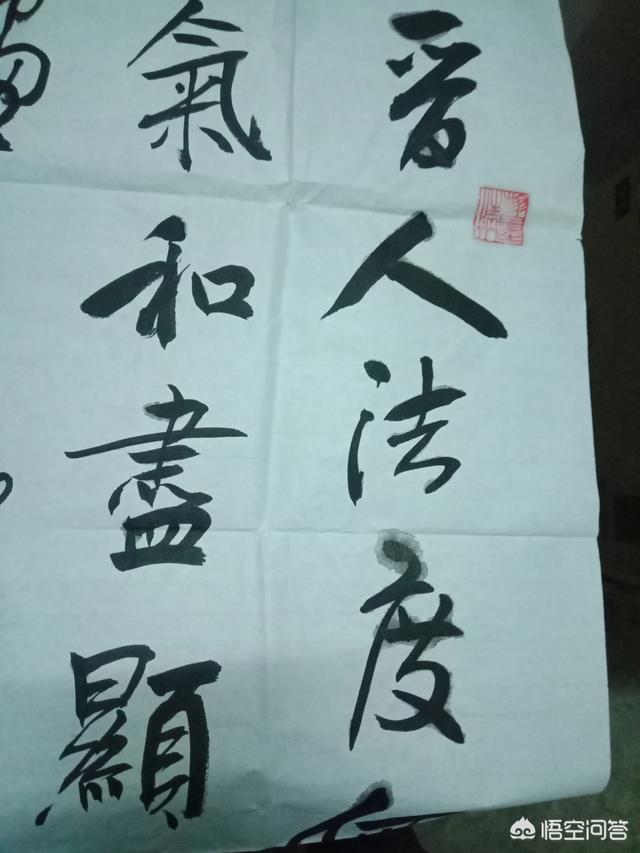 晋人法度
氣和盡顯
悟空问答